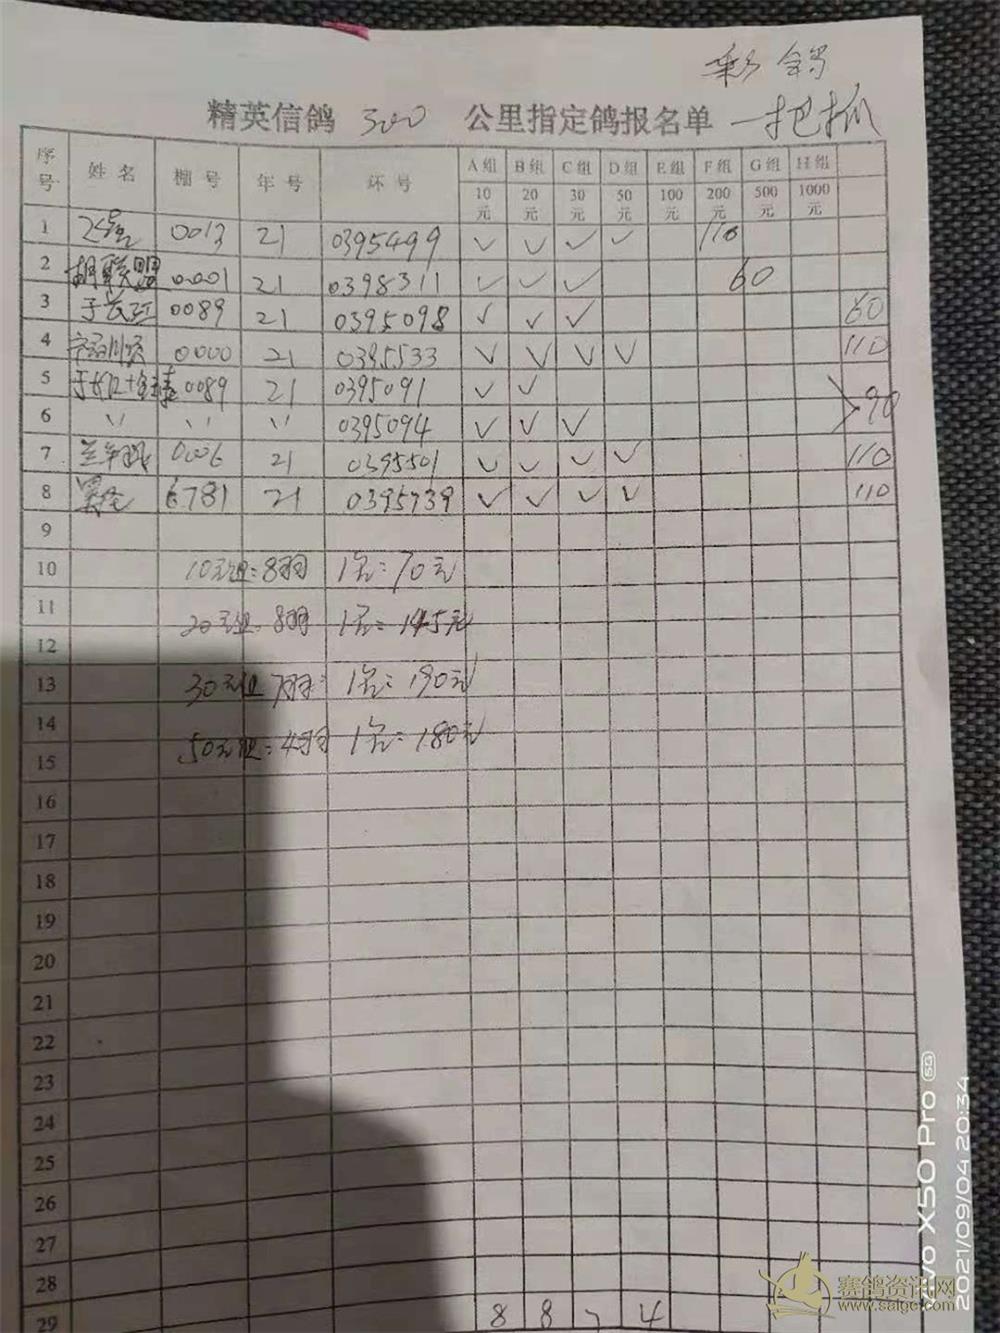 彩鸽
精英信鸽 300 公里指定鸽报名单 一把抓
序号 姓名 棚号 年号 环号 A组 B组 C组 D组 E组 F组 G组 H组
10元 20元 30元 50元 100元 200元 500元 1000元
1 0013 21 0395499 ✓ ✓ ✓ ✓ 110
2 胡联盟 0001 21 0398311 ✓ ✓ ✓ 60
3 于长江 0089 21 0395098 ✓ ✓ ✓ 60
4 0000 21 0395533 ✓ ✓ ✓ ✓ 110
5 于长江+ 0089 21 0395091 ✓ ✓ 90
6 〃 〃 〃 0395094 ✓ ✓ ✓
7 0006 21 0395501 ✓ ✓ ✓ ✓ 110
8 6781 21 0395739 ✓ ✓ ✓ ✓ 110
9
10 10元组=8羽 1名=70元
11 20元组=8羽 1名=145元
12
13 30元组7羽= 1名=190元
14
15 50元组=4羽 1名=180元
16
17
18
19
20
21
22
23
24
25
26
27
28
29 8 8 7 4
vivo X50 Pro 5G
2021/09/04 20:34
赛鸽资讯网
www.saige.com